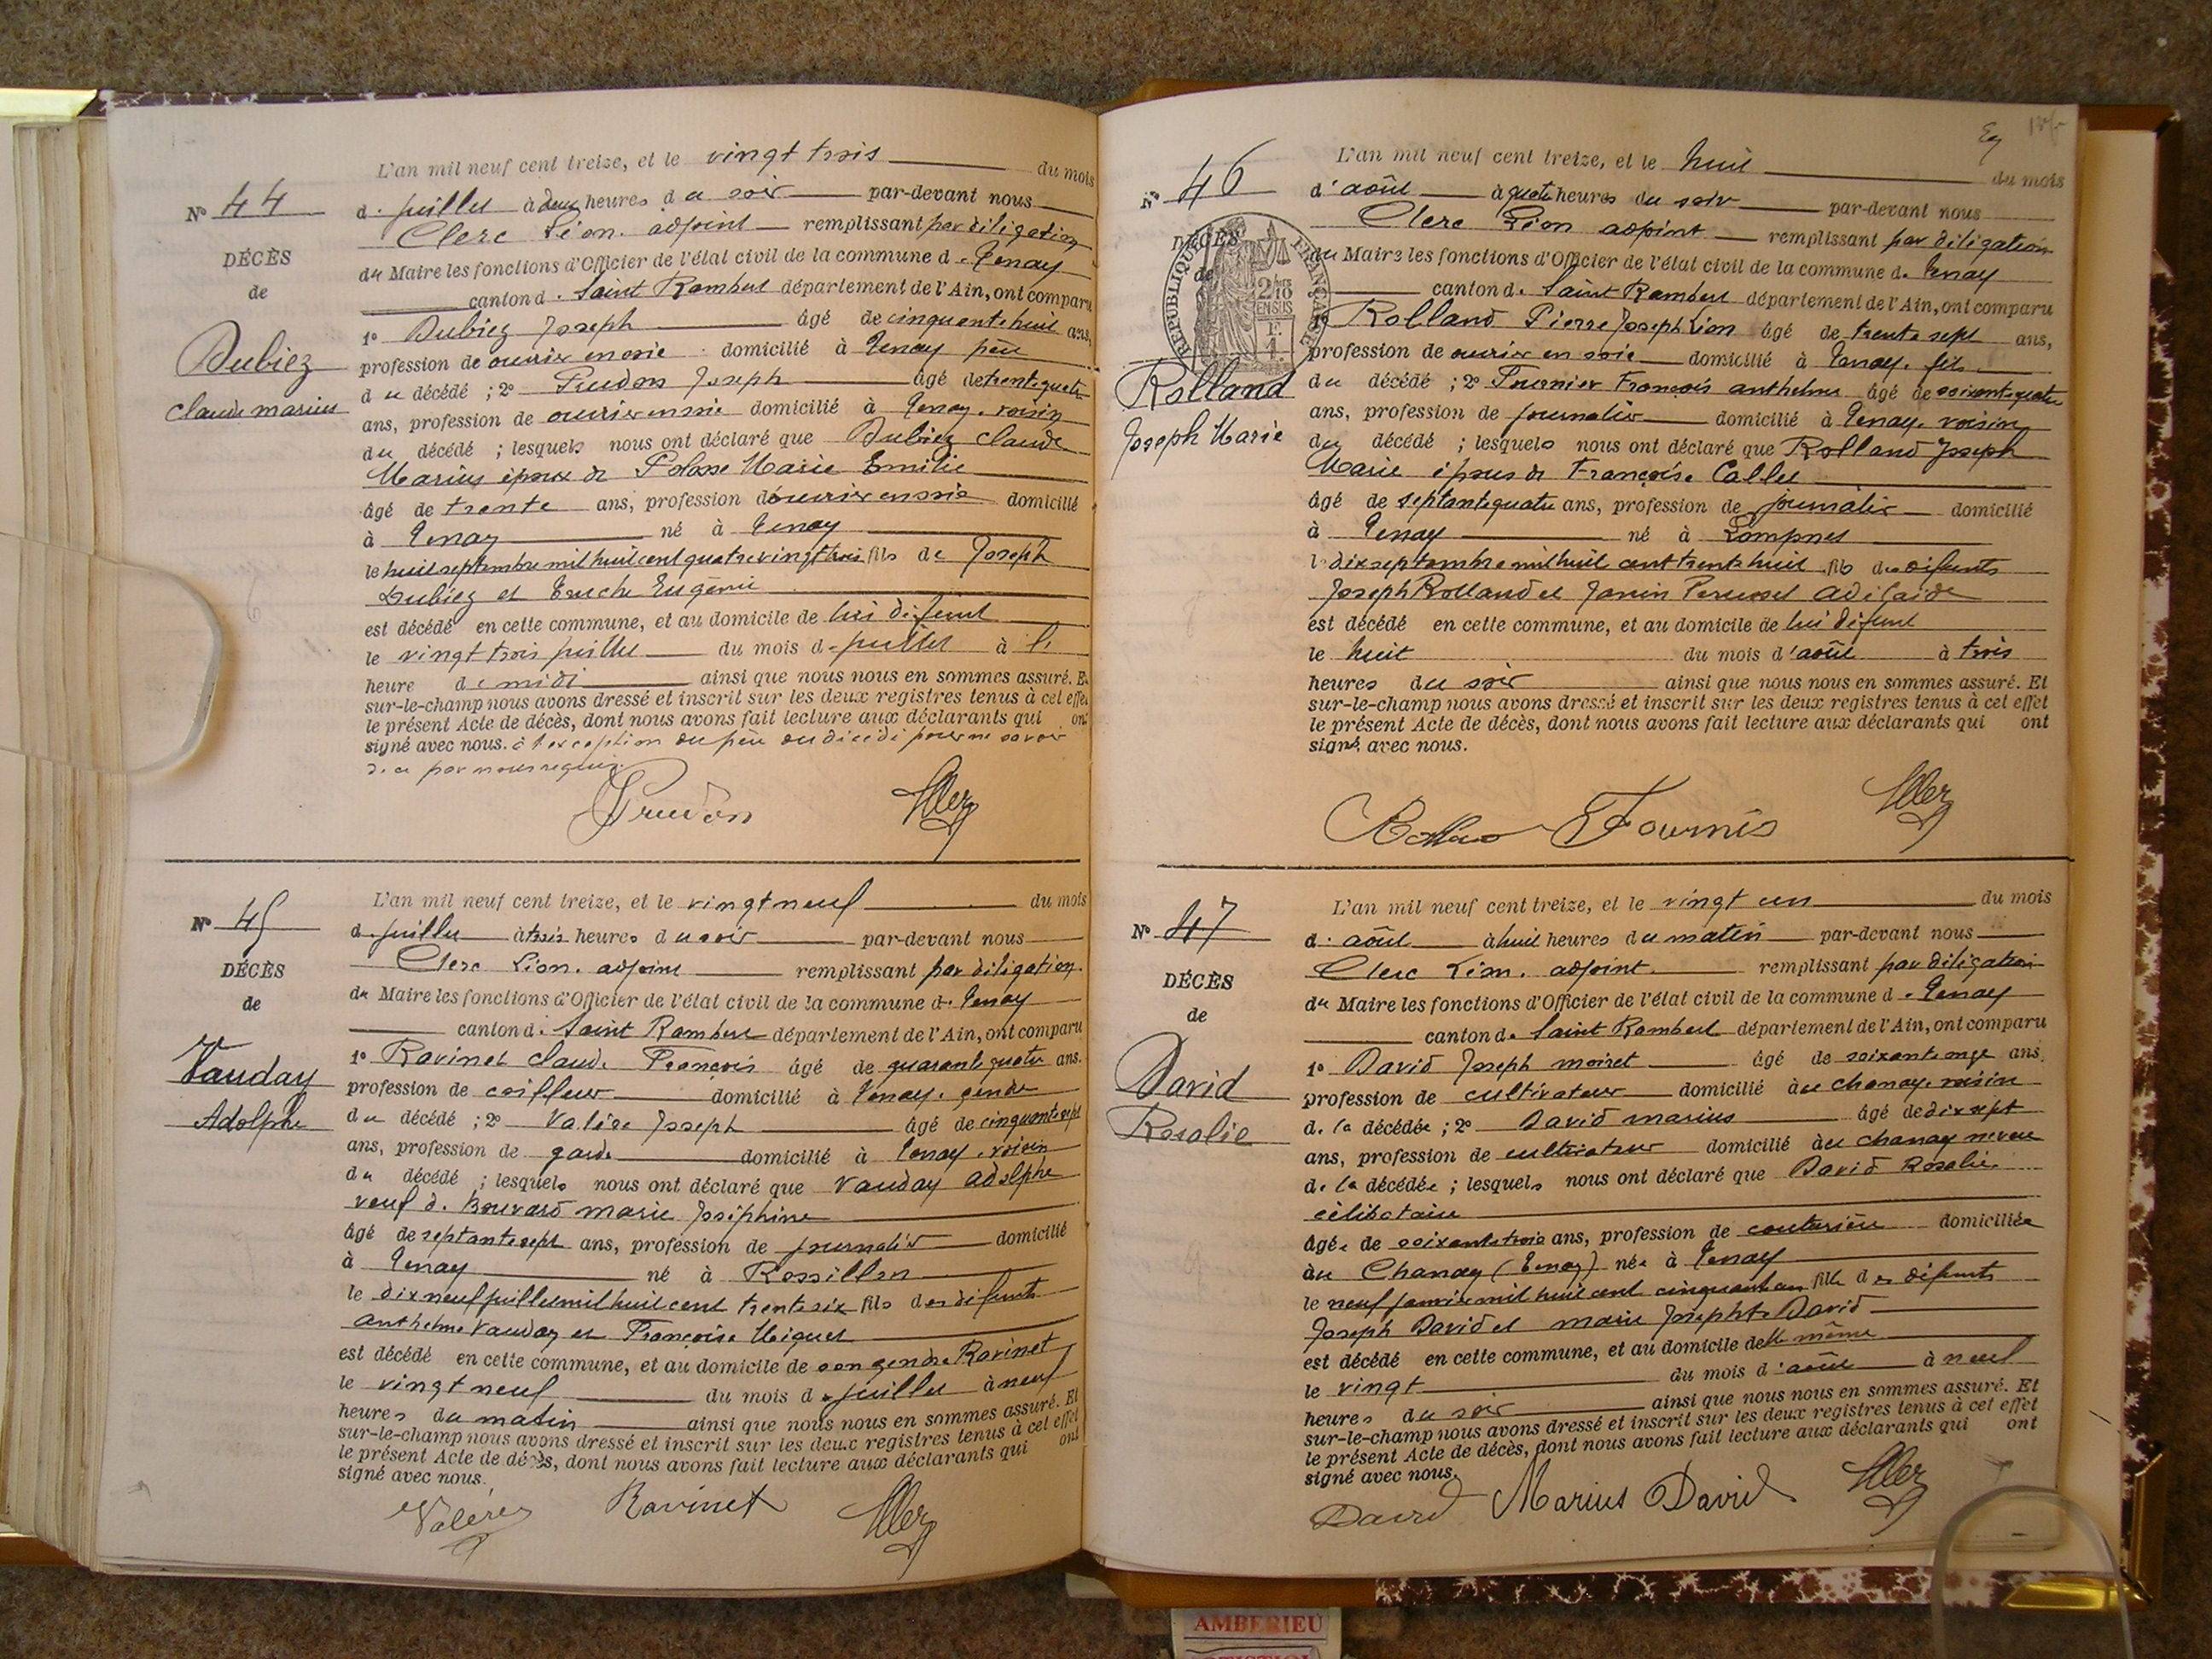 L'an mil neuf cent treize, et le vingt trois du mois
N° 44
d. juillet à deux heures du soir par-devant nous
Clerc Léon. adjoint remplissant par délégation
DÉCÈS
du Maire les fonctions d'Officier de l'état civil de la commune d. Tenay
de
canton d. Saint Rambert département de l'Ain, ont comparu
1° Dubiez Joseph âgé de cinquante huit ans,
Dubiez
profession de ouvrier en soie domicilié à Tenay père
Claude marius
du décédé ; 2° Prudon Joseph âgé de trente quatre
ans, profession de ouvrier en soie domicilié à Tenay. voisin
du décédé ; lesquels nous ont déclaré que Dubiez Claude
Marius époux de Marie Emilie
âgé de trente ans, profession d'ouvrier en soie domicilié
à Tenay né à Tenay
le huit septembre mil huit cent quatre vingt trois fils de Joseph
Dubiez et Eugénie
est décédé en cette commune, et au domicile de lui défunt
le vingt trois juillet du mois d. juillet à l'
heure de midi ainsi que nous nous en sommes assuré. Et
sur-le-champ nous avons dressé et inscrit sur les deux registres tenus à cel effet
le présent Acte de décès, dont nous avons fait lecture aux déclarants qui ont
signé avec nous. à l'exception du père du décédé pour ne savoir
de ce par nous requis.
Prudon
LClerc
L'an mil neuf cent treize, et le vingt neuf du mois
N° 45
d. juillet à trois heures du soir par-devant nous
Clerc Léon. adjoint remplissant par délégation.
DÉCÈS
du Maire les fonctions d'Officier de l'état civil de la commune d. Tenay
de
canton d. Saint Rambert département de l'Ain, ont comparu
1° Ravinet Claude François âgé de quarante quatre ans.
Vauday
profession de coiffeur domicilié à Tenay. gendre
Adolphe
du décédé ; 2° Valère Joseph âgé de cinquante sept
ans, profession de garde domicilié à Tenay. voisin
du décédé ; lesquels nous ont déclaré que Vauday Adolphe
veuf d. Bouvard marie Joséphine
âgé de septante sept ans, profession de journalier domicilié
à Tenay né à Rossillon
le dix neuf juillet mil huit cent trente six fils des défunts
Anthelme Vauday et Françoise Miguet
est décédé en cette commune, et au domicile de son gendre Ravinet
le vingt neuf du mois d. juillet à neuf
heures du matin ainsi que nous nous en sommes assuré. Et
sur-le-champ nous avons dressé et inscrit sur les deux registres tenus à cel effet
le présent Acte de décès, dont nous avons fait lecture aux déclarants qui ont
signé avec nous.
Valère
Ravinet
LClerc
L'an mil neuf cent treize, et le huit du mois
N° 46
d'août à quatre heures du soir par-devant nous
Clerc Léon adjoint remplissant par délégation
DÉCÈS
de
RÉPUBLIQUE FRANÇAISE
2/10 EN SUS
du Maire les fonctions d'Officier de l'état civil de la commune d. Tenay
canton d. Saint Rambert département de l'Ain, ont comparu
Rolland Pierre Joseph Léon âgé de trente sept ans,
profession de ouvrier en soie domicilié à Tenay. fils
Rolland
Joseph Marie
du décédé ; 2° Fournier François anthelme âgé de soixante quatre
ans, profession de journalier domicilié à Tenay. voisin
du décédé ; lesquels nous ont déclaré que Rolland Joseph
Marie époux de Françoise Callet
âgé de septante quatre ans, profession de journalier domicilié
à Tenay né à Lompnes
le dix septembre mil huit cent trente huit fils des défunts
Joseph Rolland et Janin Adélaïde
est décédé en cette commune, et au domicile de lui défunt
le huit du mois d'août à trois
heures du soir ainsi que nous nous en sommes assuré. Et
sur-le-champ nous avons dressé et inscrit sur les deux registres tenus à cel effet
le présent Acte de décès, dont nous avons fait lecture aux déclarants qui ont
signé avec nous.
Rolland
Fournier
LClerc
L'an mil neuf cent treize, et le vingt un du mois
N° 47
d. août à huit heures du matin par-devant nous
Clerc Léon. adjoint. remplissant par délégation
DÉCÈS
du Maire les fonctions d'Officier de l'état civil de la commune d. Tenay
de
canton d. Saint Rambert département de l'Ain, ont comparu
1° David Joseph moinet âgé de soixante onze ans.
David
profession de cultivateur domicilié au chanay. voisin
Rosalie
d. la décédée ; 2° David marius âgé de dix sept
ans, profession de cultivateur domicilié au chanay neveu
d. la décédée ; lesquels nous ont déclaré que David Rosalie
célibataire
âgée de soixante trois ans, profession de couturière domiciliée
au Chanay (Tenay) née à Tenay
le neuf janvier mil huit cent cinquante un fille des défunts
Joseph David et marie Josephte David
est décédé en cette commune, et au domicile d'elle même
le vingt du mois d'août à neuf
heures du soir ainsi que nous nous en sommes assuré. Et
sur-le-champ nous avons dressé et inscrit sur les deux registres tenus à cel effet
le présent Acte de décès, dont nous avons fait lecture aux déclarants qui ont
signé avec nous.
David
Marius David
LClerc
AMBERIEU